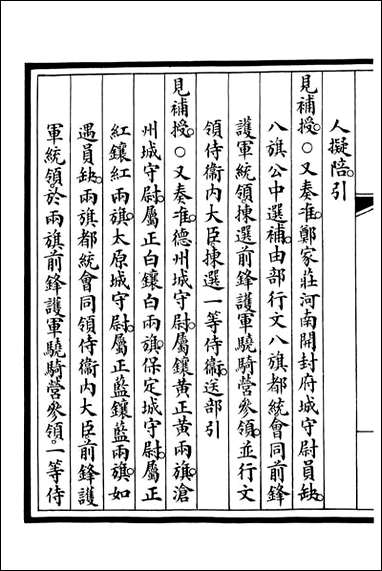 人擬陪引
見補授○又奏准鄭家莊河南開封府城守尉員缺
八旗公中選補由部行文八旗都統會同前鋒
護軍統領揀選前鋒護軍驍騎營參領並行文
領侍衛內大臣揀選一等侍衛送部引
見補授○又奏准德州城守尉屬鑲黃正黃兩旗滄
州城守尉屬正白鑲白兩旗保定城守尉屬正
紅鑲紅兩旗太原城守尉屬正藍鑲藍兩旗如
遇員缺兩旗都統會同領侍衛內大臣前鋒護
軍統領於兩旗前鋒護軍驍騎營參領一等侍